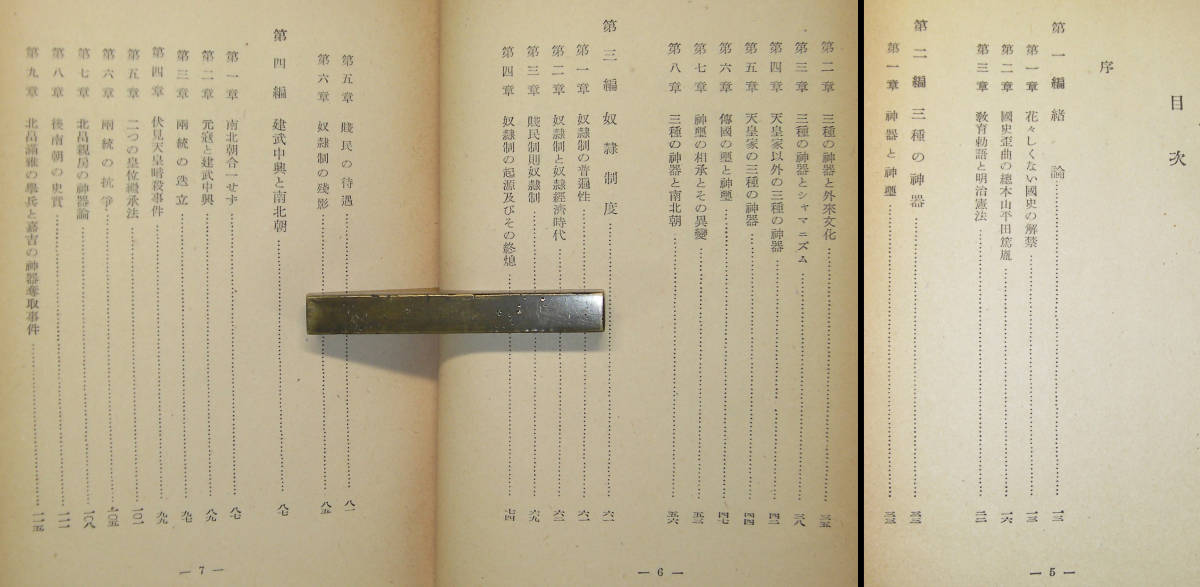 目次
序
第一編 緒論……一三
第一章 花々しくない國史の解禁……一三
第二章 國史歪曲の總本山平田篤胤……一六
第三章 敎育勅語と明治憲法……二二
第二編 三種の神器……三三
第一章 神器と神璽……三三
— 5 —
第二章 三種の神器と外來文化……三五
第三章 三種の神器とシャマニズム……三八
第四章 天皇家以外の三種の神器……四二
第五章 天皇家の三種の神器……四四
第六章 傳國の璽と神璽……四七
第七章 神璽の相承とその異變……五三
第八章 三種の神器と南北朝……五六
第三編 奴隷制度……六一
第一章 奴隷制の普遍性……六一
第二章 奴隷制と奴隷經濟時代……六二
第三章 賤民制則奴隷制……六九
第四章 奴隷制の起源及びその終熄……七四
— 6 —
第五章 賤民の待遇……八一
第六章 奴隷制の殘影……八五
第四編 建武中興と南北朝……八七
第一章 南北朝合一せず……八七
第二章 元寇と建武中興……八九
第三章 兩統の迭立……九七
第四章 伏見天皇暗殺事件……九九
第五章 二つの皇位繼承法……一〇一
第六章 兩統の抗爭……一〇五
第七章 北畠親房の神器論……一〇八
第八章 後南朝の史實……一一一
第九章 北畠滿雅の擧兵と嘉吉の神器奪取事件……一一五
— 7 —